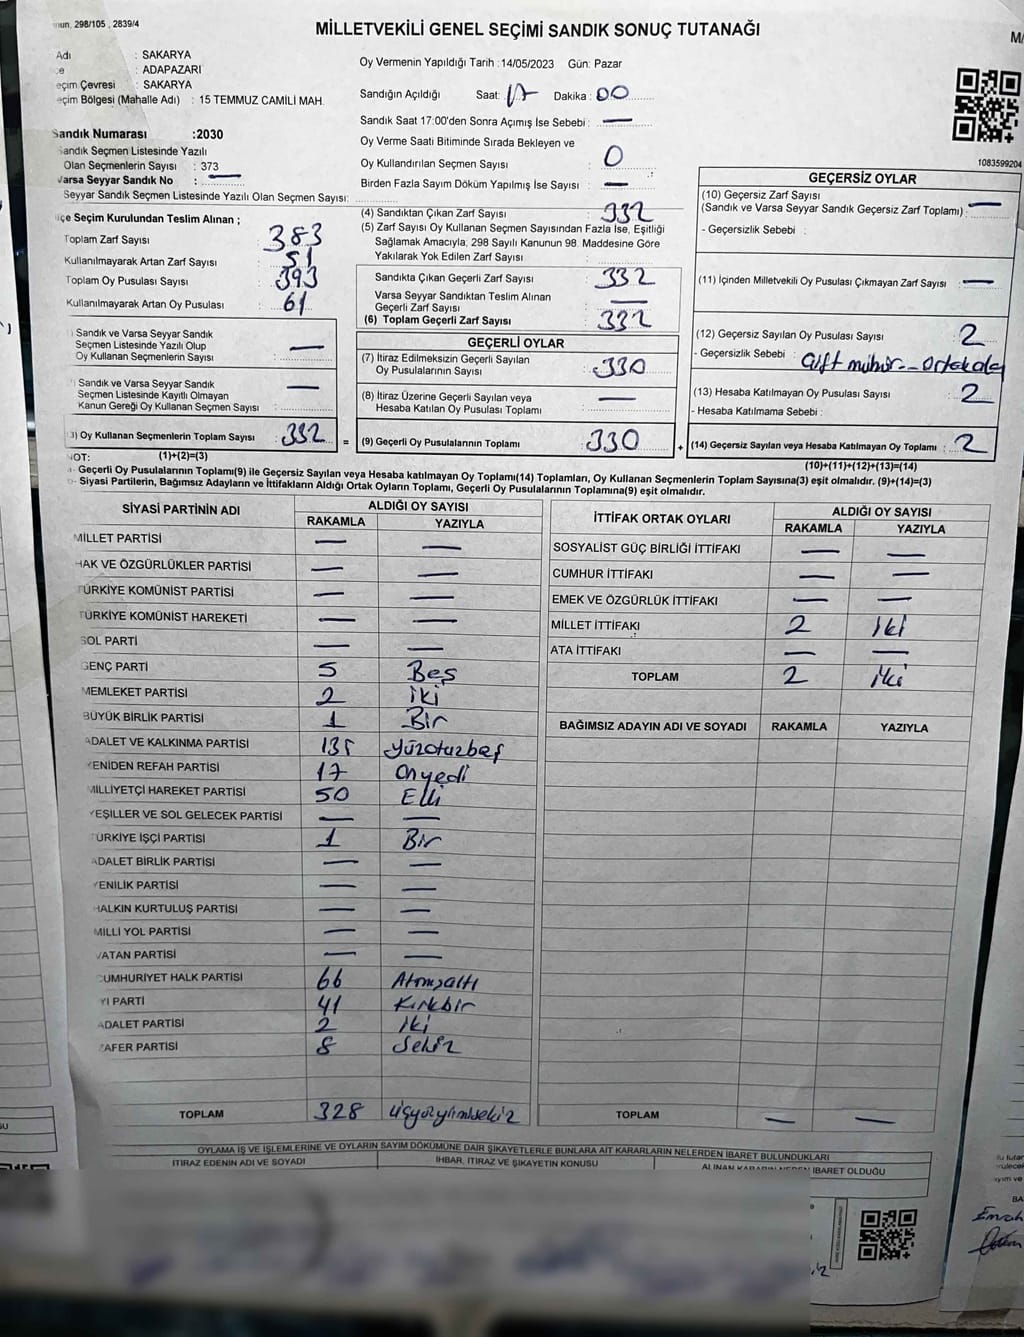 nun, 298/105 , 2839/4
MİLLETVEKİLİ GENEL SEÇİMİ SANDIK SONUÇ TUTANAĞI
Adı : SAKARYA
: ADAPAZARI
eçim Çevresi : SAKARYA
eçim Bölgesi (Mahalle Adı) : 15 TEMMUZ CAMİLİ MAH.
Sandık Numarası :2030
Sandık Seçmen Listesinde Yazılı
Olan Seçmenlerin Sayısı : 373
Varsa Seyyar Sandık No : —
Seyyar Sandık Seçmen Listesinde Yazılı Olan Seçmen Sayısı:
Oy Vermenin Yapıldığı Tarih :14/05/2023 Gün: Pazar
Sandığın Açıldığı Saat: 17 Dakika : 00
Sandık Saat 17:00'den Sonra Açımış İse Sebebi : —
Oy Verme Saati Bitiminde Sırada Bekleyen ve
Oy Kullandırılan Seçmen Sayısı : 0
Birden Fazla Sayım Döküm Yapılmış İse Sayısı : —
1083599204
lçe Seçim Kurulundan Teslim Alınan ;
Toplam Zarf Sayısı : 383
Kullanılmayarak Artan Zarf Sayısı : 51
Toplam Oy Pusulası Sayısı : 393
Kullanılmayarak Artan Oy Pusulası : 61
) Sandık ve Varsa Seyyar Sandık
Seçmen Listesinde Yazılı Olup
Oy Kullanan Seçmenlerin Sayısı : —
) Sandık ve Varsa Seyyar Sandık
Seçmen Listesinde Kayıtlı Olmayan
Kanun Gereği Oy Kullanan Seçmen Sayısı : —
3) Oy Kullanan Seçmenlerin Toplam Sayısı : 332 =
(1)+(2)=(3)
(4) Sandıktan Çıkan Zarf Sayısı : 332
(5) Zarf Sayısı Oy Kullanan Seçmen Sayısından Fazla İse, Eşitliği
Sağlamak Amacıyla, 298 Sayılı Kanunun 98. Maddesine Göre
Yakılarak Yok Edilen Zarf Sayısı :
Sandıkta Çıkan Geçerli Zarf Sayısı : 332
Varsa Seyyar Sandıktan Teslim Alınan
Geçerli Zarf Sayısı : —
(6) Toplam Geçerli Zarf Sayısı : 332
GEÇERLİ OYLAR
(7) İtiraz Edilmeksizin Geçerli Sayılan
Oy Pusulalarının Sayısı : 330
(8) İtiraz Üzerine Geçerli Sayılan veya
Hesaba Katılan Oy Pusulası Toplamı : —
(9) Geçerli Oy Pusulalarının Toplamı : 330 +
GEÇERSİZ OYLAR
(10) Geçersiz Zarf Sayısı
(Sandık ve Varsa Seyyar Sandık Geçersiz Zarf Toplamı) : —
- Geçersizlik Sebebi :
(11) İçinden Milletvekili Oy Pusulası Çıkmayan Zarf Sayısı : —
(12) Geçersiz Sayılan Oy Pusulası Sayısı : 2
- Geçersizlik Sebebi : Çift mühür
(13) Hesaba Katılmayan Oy Pusulası Sayısı : 2
- Hesaba Katılmama Sebebi :
(14) Geçersiz Sayılan veya Hesaba Katılmayan Oy Toplamı : 2
(10)+(11)+(12)+(13)=(14)
NOT:
- Geçerli Oy Pusulalarının Toplamı(9) ile Geçersiz Sayılan veya Hesaba katılmayan Oy Toplamı(14) Toplamları, Oy Kullanan Seçmenlerin Toplam Sayısına(3) eşit olmalıdır. (9)+(14)=(3)
- Siyasi Partilerin, Bağımsız Adayların ve İttifakların Aldığı Ortak Oyların Toplamı, Geçerli Oy Pusulalarının Toplamına(9) eşit olmalıdır.
SİYASİ PARTİNİN ADI ALDIĞI OY SAYISI
RAKAMLA YAZIYLA
MİLLET PARTİSİ — —
HAK VE ÖZGÜRLÜKLER PARTİSİ — —
TÜRKİYE KOMÜNİST PARTİSİ — —
TÜRKİYE KOMÜNİST HAREKETİ — —
SOL PARTİ — —
GENÇ PARTİ 5 Beş
MEMLEKET PARTİSİ 2 iki
BÜYÜK BİRLİK PARTİSİ 1 Bir
ADALET VE KALKINMA PARTİSİ 135 yüzotuzbeş
YENİDEN REFAH PARTİSİ 17 Onyedi
MİLLİYETÇİ HAREKET PARTİSİ 50 Elli
YEŞİLLER VE SOL GELECEK PARTİSİ — —
TÜRKİYE İŞÇİ PARTİSİ 1 Bir
ADALET BİRLİK PARTİSİ — —
YENİLİK PARTİSİ — —
HALKIN KURTULUŞ PARTİSİ — —
MİLLİ YOL PARTİSİ — —
VATAN PARTİSİ — —
CUMHURİYET HALK PARTİSİ 66 Atmışaltı
Yİ PARTİ 41 Kırkbir
ADALET PARTİSİ 2 iki
ZAFER PARTİSİ 8 Sekiz
TOPLAM 328 üçyüzyirmisekiz
İTTİFAK ORTAK OYLARI ALDIĞI OY SAYISI
RAKAMLA YAZIYLA
SOSYALİST GÜÇ BİRLİĞİ İTTİFAKI — —
CUMHUR İTTİFAKI — —
EMEK VE ÖZGÜRLÜK İTTİFAKI — —
MİLLET İTTİFAKI 2 iki
ATA İTTİFAKI — —
TOPLAM 2 iki
BAĞIMSIZ ADAYIN ADI VE SOYADI RAKAMLA YAZIYLA
TOPLAM — —
OYLAMA İŞ VE İŞLEMLERİNE VE OYLARIN SAYIM DÖKÜMÜNE DAİR ŞİKAYETLERLE BUNLARA AİT KARARLARIN NELERDEN İBARET BULUNDUKLARI
İTİRAZ EDENİN ADI VE SOYADI İHBAR, İTİRAZ VE ŞİKAYETİN KONUSU ALINAN KARARIN NEDEN İBARET OLDUĞU